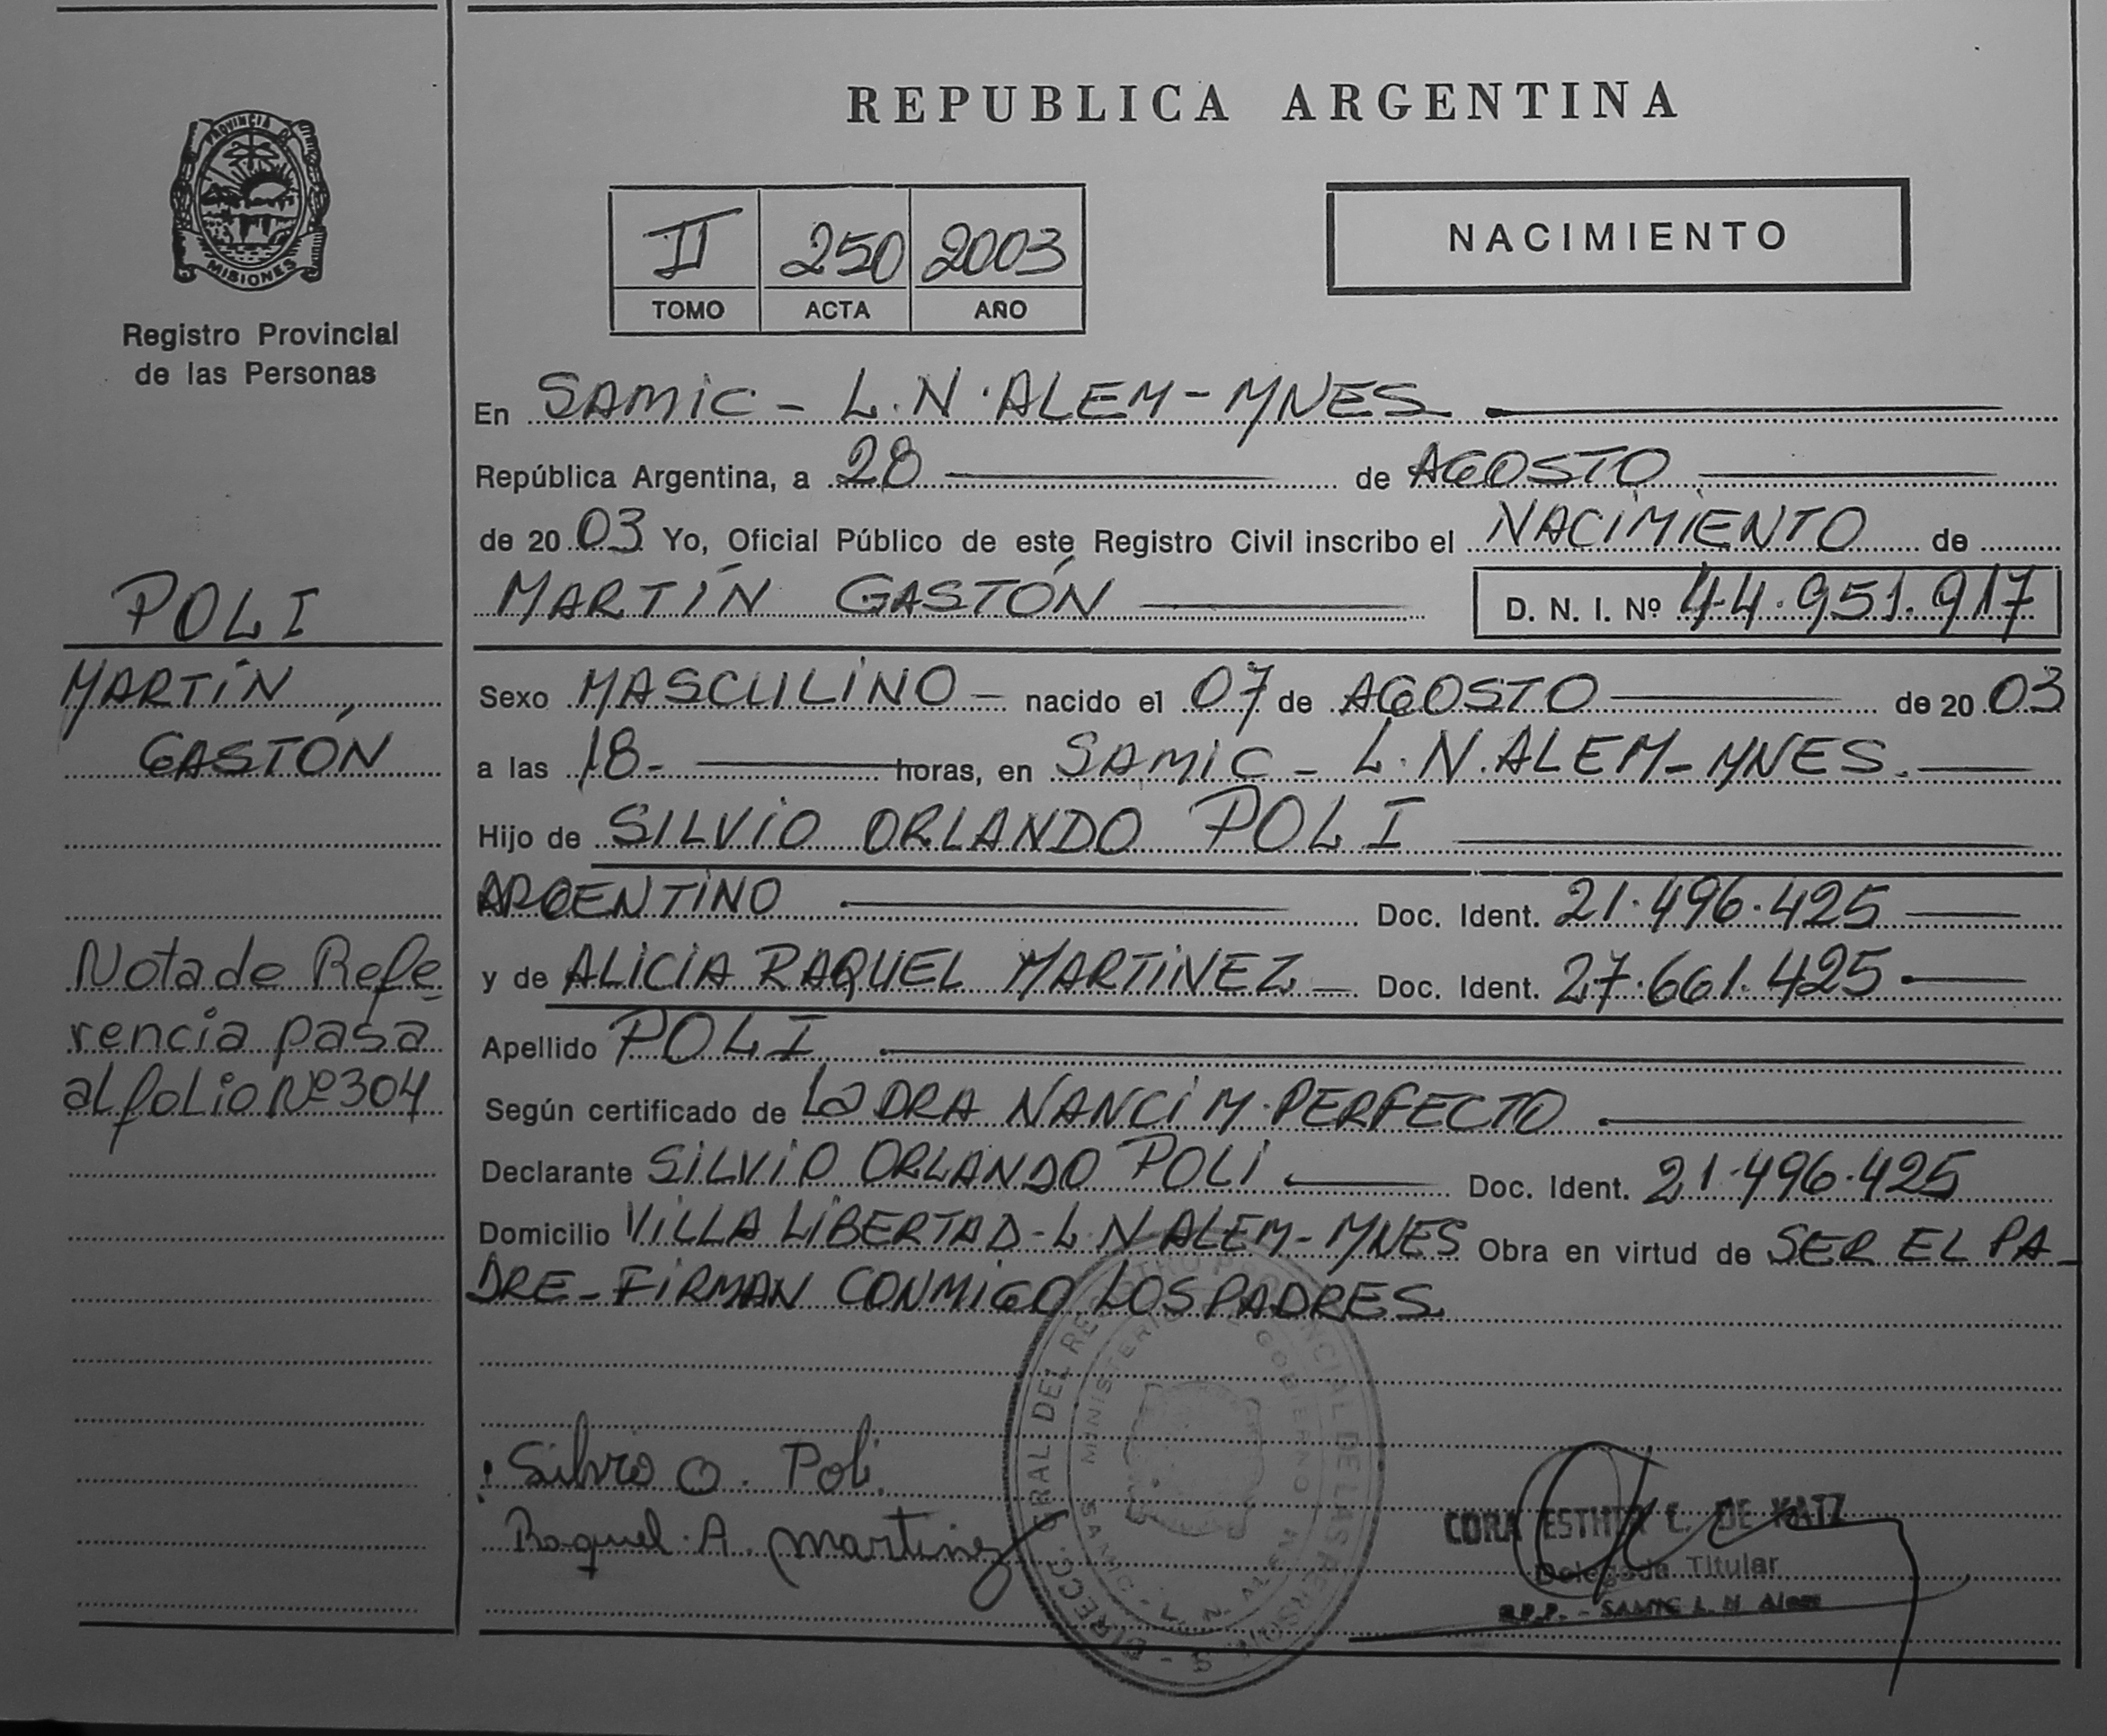 PROVINCIA DE
MISIONES
Registro Provincial
de las Personas
POLI
MARTÍN
GASTÓN
Nota de Refe
rencia pasa
al folio Nº 304
REPUBLICA ARGENTINA
II 250 2003
TOMO ACTA AÑO
NACIMIENTO
En SAMIC - L.N. ALEM - MNES
República Argentina, a 28 de AGOSTO
de 20 03 Yo, Oficial Público de este Registro Civil inscribo el NACIMIENTO de
MARTÍN GASTÓN D. N. I. Nº 44.951.917
Sexo MASCULINO - nacido el 07 de AGOSTO de 20 03
a las 18- horas, en SAMIC - L.N. ALEM - MNES.
Hijo de SILVIO ORLANDO POLI
ARGENTINO Doc. Ident. 21.496.425
y de ALICIA RAQUEL MARTINEZ - Doc. Ident. 27.661.425
Apellido POLI
Según certificado de La DRA NANCI M. PERFECTO
Declarante SILVIO ORLANDO POLI Doc. Ident. 21.496.425
Domicilio VILLA LIBERTAD - L N ALEM - MNES Obra en virtud de SER EL PA-
DRE - FIRMAN CONMIGO LOS PADRES.
Silvio O. Poli
Raquel A. Martinez
DIRECC. GRAL DEL REGISTRO PROVINCIAL DE LAS PERSONAS
MINISTERIO DE GOBIERNO
SAMIC - L. N. ALEM
CORA ESTHER C. DE KATZ
Delegada Titular
R.P.P. - SAMIC L. N. Alem